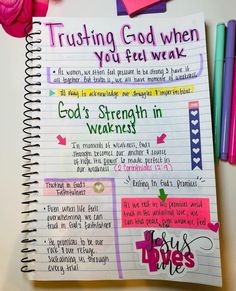 Trusting God when
you feel weak
• As women, we often feel pressure to be strong & have it
all together. But truth is, we all have moments of weakness
God's Strength in
Weakness
In moments of weakness, God's
strength becomes our anchor & source
of hope. His power is made perfect in
our weakness (2 Corinthians 12:9)
Trusting in God's
Faithfulness
• Even when life feels
overwhelming we can
trust in God's faithfulness
• He promises to be our
rock & our refuge
Sustaining us through
every trial
"Resting In God's Promises"
As we rest in His promises
trust in His unfailing love, we
can find peace, even
Jesus
Loves
me